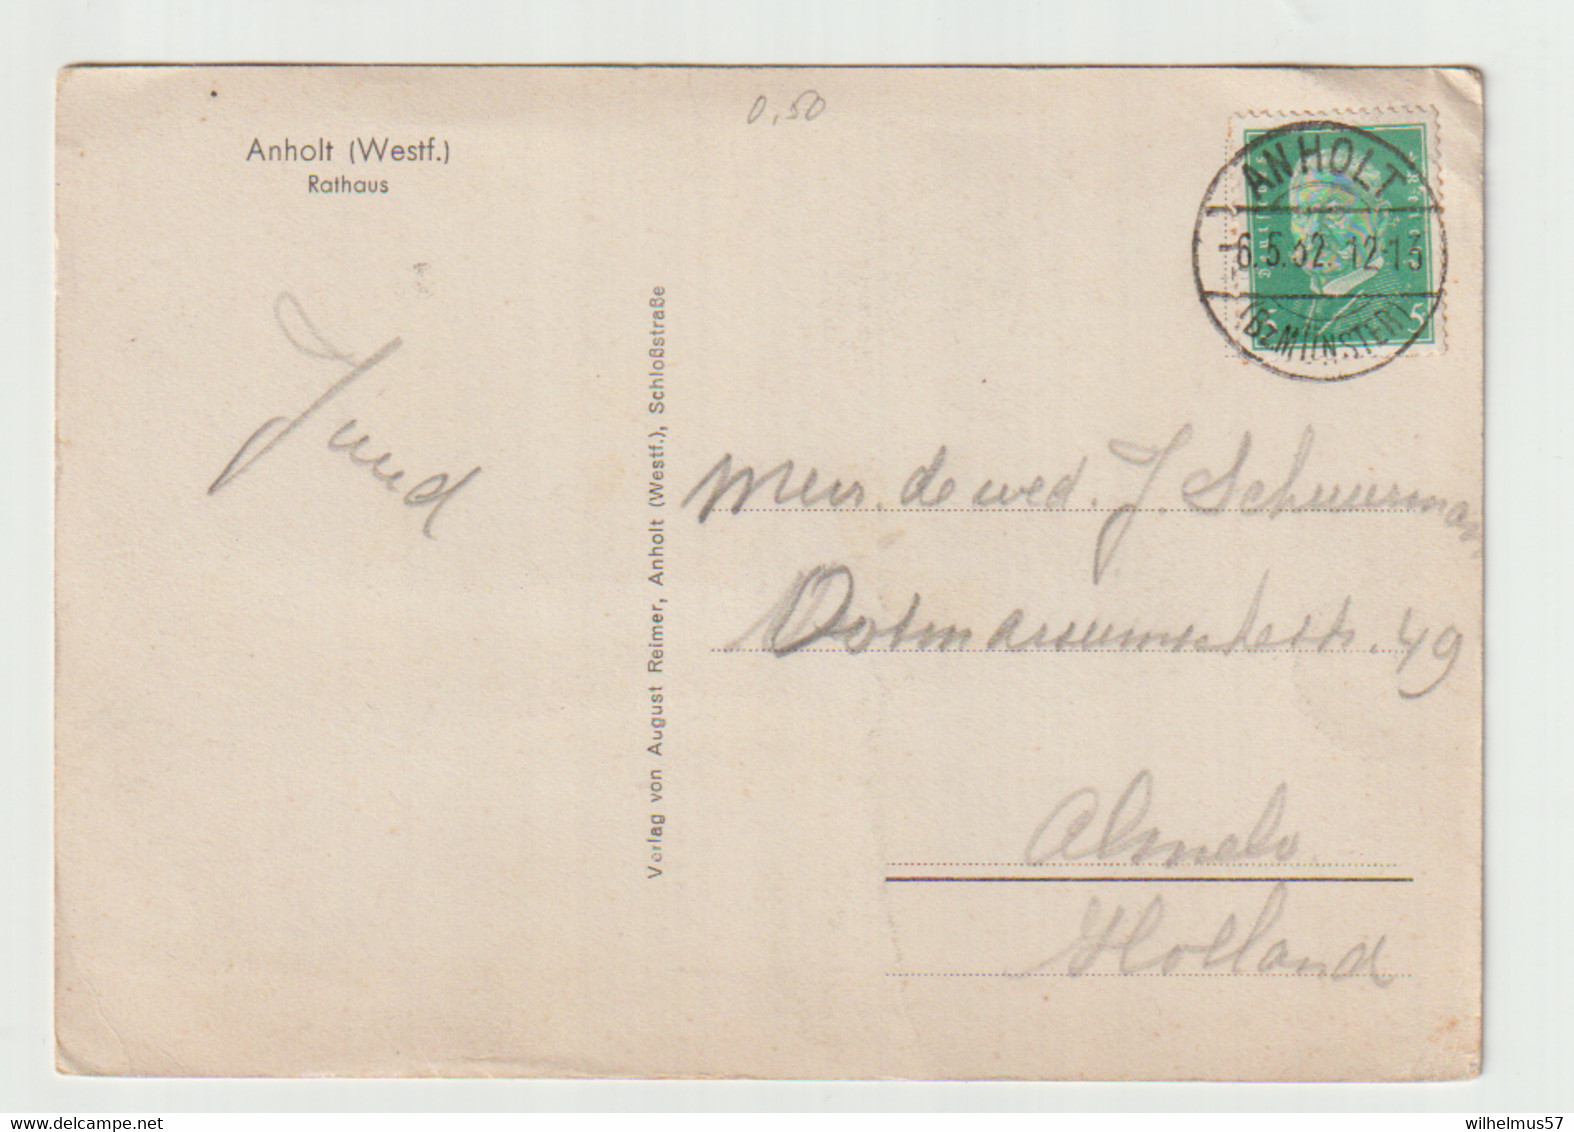 0,50
Anholt (Westf.)
Rathaus
ANHOLT
-6.5.32. 12-13
(Bz MÜNSTER)
Deutsches Reich
5 5
Verlag von August Reimer, Anholt (Westf.), Schloßstraße
de wed. J. Schuurman
49
Almelo
Holland
delcampe.net
wilhelmus57